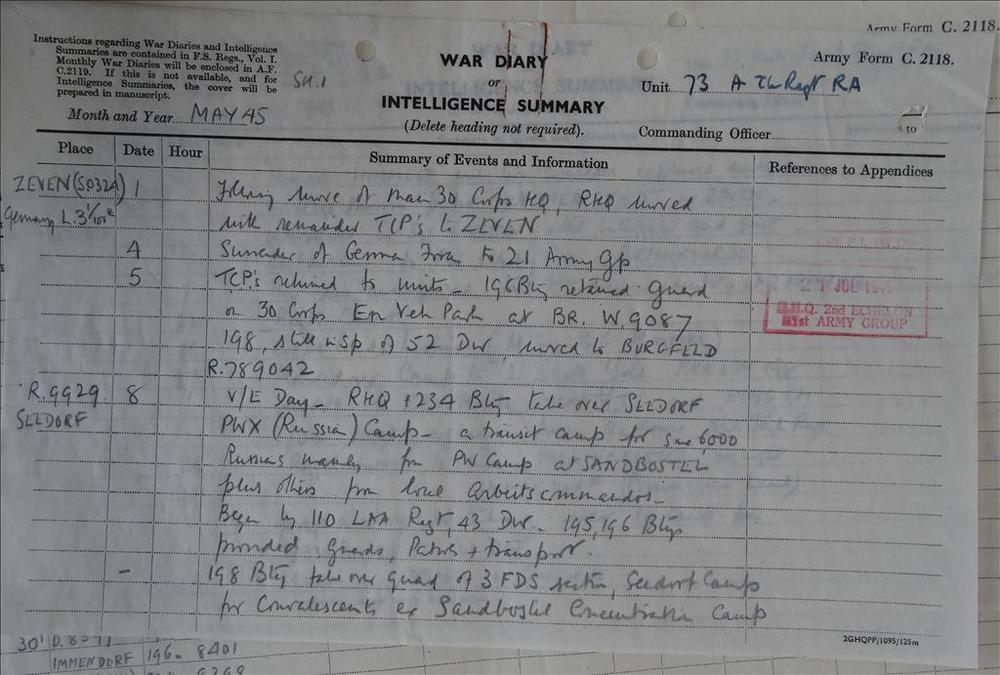 Army Form C. 2118.
Instructions regarding War Diaries and Intelligence
Summaries are contained in F.S. Regs., Vol. I.
Monthly War Diaries will be enclosed in A.F.
C.2119. If this is not available, and for
Intelligence Summaries, the cover will be
prepared in manuscript.
Sh.1
WAR DIARY
or
INTELLIGENCE SUMMARY
(Delete heading not required).
Army Form C. 2118.
Unit 73 A Tk Regt RA
Month and Year MAY 45
Commanding Officer
to
Place Date Hour Summary of Events and Information References to Appendices
ZEVEN (S0324) 1 Following move of Main 30 Corps HQ, RHQ moved
Germany L.3 with remainder TCP's to ZEVEN
4 Surrender of German Forces to 21 Army Gp
5 TCP's returned to units - 196 Bty retained guard
on 30 Corps En Veh Park at BR. W.9087
198, still i/sp of 52 Div, moved to BURGFELD
R.789042
R.9929 8 V/E Day - RHQ + 234 Bty take over SEEDORF
SEEDORF PWX (Russian) Camp - a transit camp for some 6,000
Russians mainly from PW Camp at SANDBOSTEL
plus others from local Arbeitscommandos -
Began by 110 LAA Regt, 43 Div - 195, 196 Btys
provided guards, Patrols + transport.
- 198 Bty take over guard of 3 FDS section, Seedorf Camp
for Convalescents ex Sandbostel Concentration Camp
JUL
H.Q. 2nd ECHELON
21st ARMY GROUP
2GHQPP/1095/125m
IMMENDORF 196 - 8401